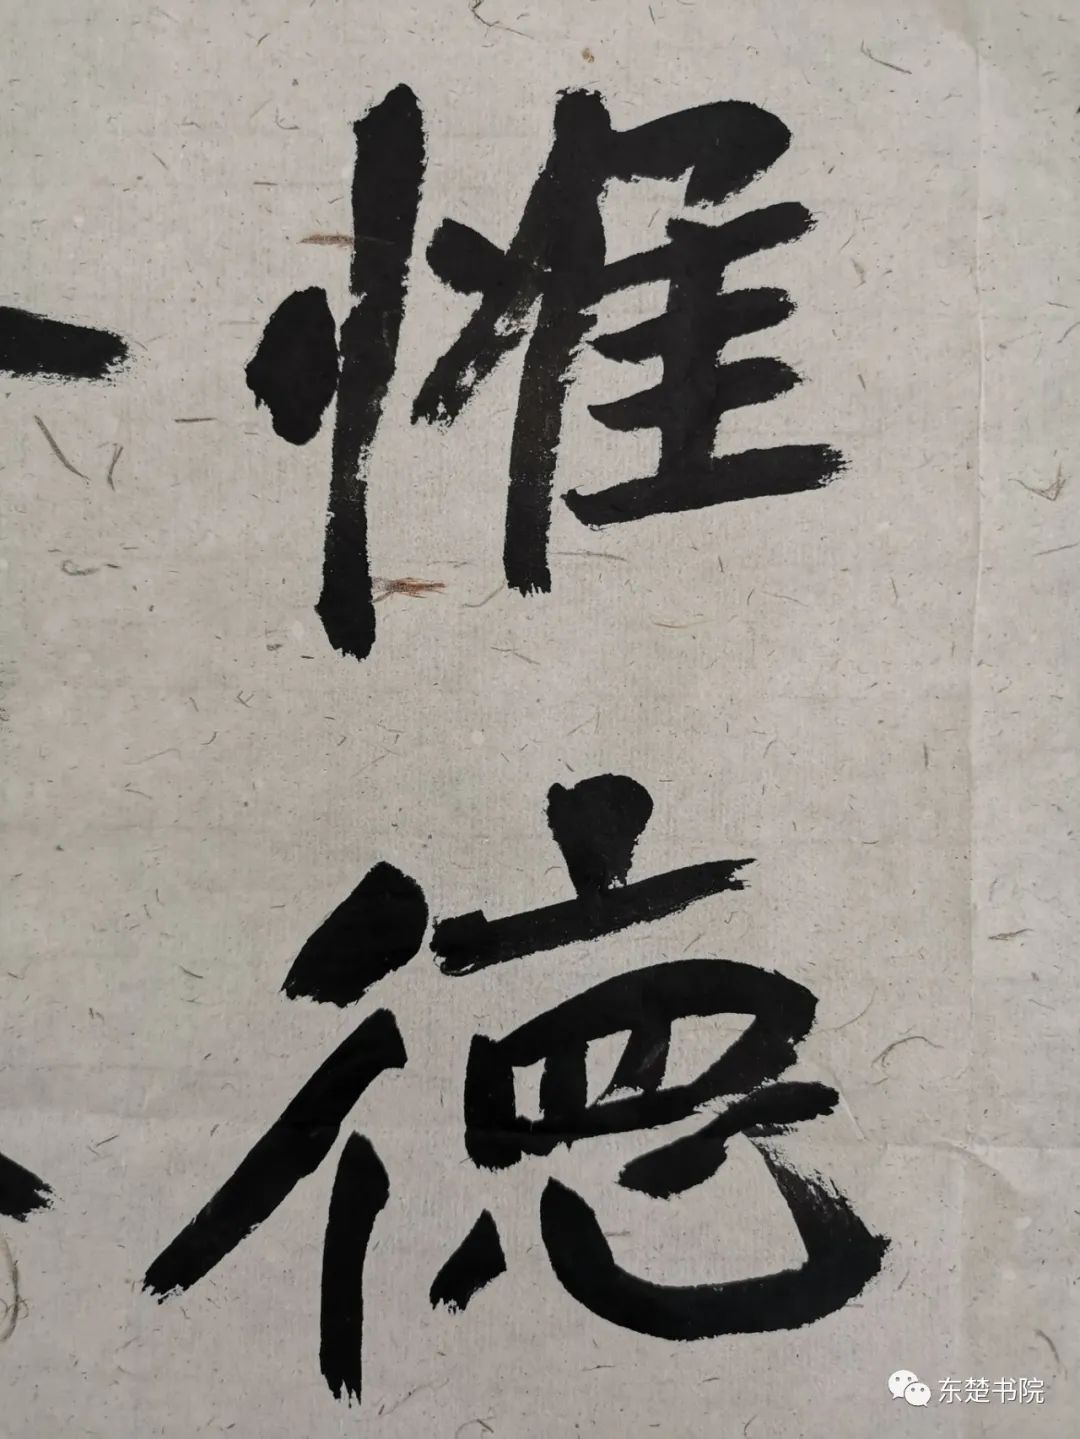 惟德
东楚书院